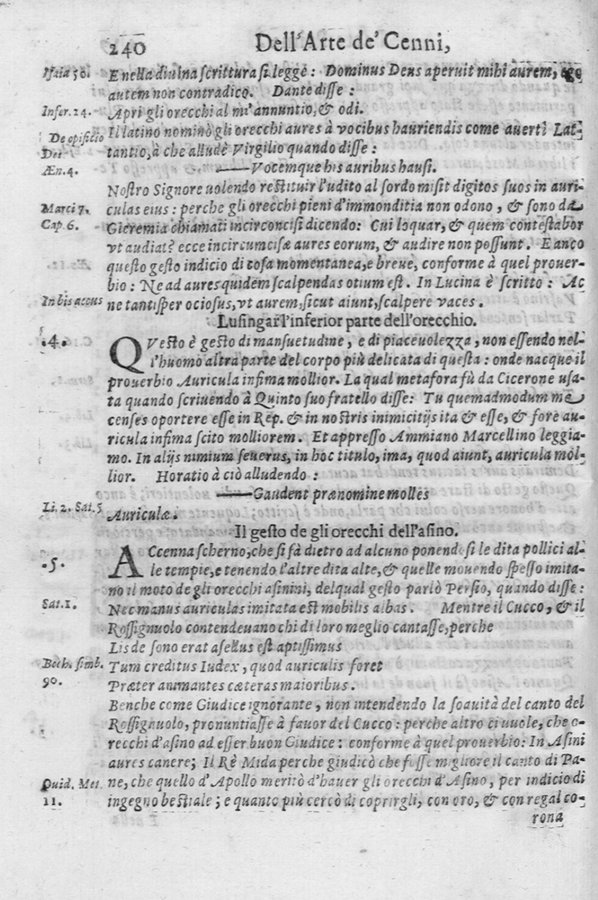 240 Dell'Arte de' Cenni,
Isaia 50. E nella diuina scrittura si legge: Dominus Deus aperuit mihi aurem, ego
autem non contradico. Dante disse:
Infer. 24. Apri gli orecchi al m'annuntio, & odi.
De opificio Il latino nominò gli orecchi aures à vocibus hauriendis come auertì Lat-
Dei tantio, à che allude Virgilio quando disse:
Æn. 4. —Vocemque his auribus hausi.
Nostro Signore uolendo restituir l'udito al sordo misit digitos suos in auri-
Marci 7. culas eius: perche gli orecchi pieni d'immonditia non odono, & sono da
Cap. 6. Gieremia chiamati incirconcisi dicendo: Cui loquar, & quem contestabor
vt audiat? ecce incircumcisæ aures eorum, & audire non possunt. E anco
questo gesto indicio di cosa momentanea, e breue, conforme à quel prouer-
bio: Ne ad aures quidem scalpendas otium est. In Lucina è scritto: Ac
In bis accus ne tantisper ociosus, vt aurem, sicut aiunt, scalpere vaces.
Lusingar l'inferior parte dell'orecchio.
.4. QVesto è gesto di mansuetudine, e di piaceuolezza, non essendo nel-
l'huomo altra parte del corpo più delicata di questa: onde nacque il
prouerbio Auricula infima mollior. La qual metafora fù da Cicerone usa-
ta quando scriuendo à Quinto suo fratello disse: Tu quemadmodum me
censes oportere esse in Rep. & in nostris inimicitijs ita & esse, & fore au-
ricula infima scito molliorem. Et appresso Ammiano Marcellino leggia-
mo. In alijs nimium seuerus, in hoc titulo, ima, quod aiunt, auricula mol-
lior. Horatio à ciò alludendo:
—Gaudent prænomine molles
Li. 2. Sat. 5 Auriculæ.
Il gesto de gli orecchi dell'asino.
.5. ACcenna scherno, che si fà dietro ad alcuno ponendosi le dita pollici al-
le tempie, e tenendo l'altre dita alte, & quelle mouendo spesso imita-
no il moto de gli orecchi asinini, del qual gesto parlò Persio, quando disse:
Sat. 1. Nec manus auriculas imitata est mobilis albas. Mentre il Cucco, & il
Rossignuolo contendeuano chi di loro meglio cantasse, perche
Lis de sono erat asellus est aptissimus
simb. Tum creditus Iudex, quod auriculis foret
90. Præter animantes cæteras maioribus.
Benche come Giudice ignorante, non intendendo la soauità del canto del
Rossignuolo, pronuntiasse à fauor del Cucco: perche altro ci vuole, che o-
recchi d'asino ad esser buon Giudice: conforme à quel prouerbio: In Asini
aures canere; Il Rè Mida perche giudicò che fosse migliore il canto di Pa-
Ouid. Met. ne, che quello d'Apollo meritò d'hauer gli orecchi d'Asino, per indicio di
11. ingegno bestiale; e quanto più cercò di coprirgli, con oro, & con regal co-
rona